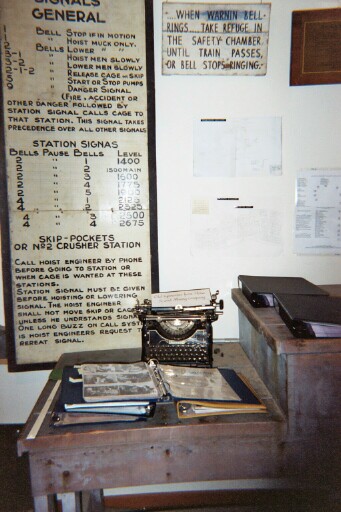 SIGNALS
GENERAL
1 BELL STOP IF IN MOTION
1 " HOIST MUCK ONLY.
2 BELLS LOWER "
3-1 " HOIST MEN SLOWLY
3-2 " LOWER MEN SLOWLY
" RELEASE CAGE OR SKIP
" START OR STOP PUMPS
9 " DANGER SIGNAL
(FIRE, ACCIDENT OR
OTHER DANGER FOLLOWED BY
STATION SIGNAL CALLS CAGE TO
THAT STATION. THIS SIGNAL TAKES
PRECEDENCE OVER ALL OTHER SIGNALS
STATION SIGNAS
BELLS PAUSE BELLS LEVEL
2 " 1 1400
2 " 2 1500 MAIN
2 " 3 1600
2 " 4 1775
2 " 5 1900
4 " 1 2125
4 " 2 2325
4 " 3 2500
4 " 4 2675
SKIP-POCKETS
OR Nº2 CRUSHER STATION
CALL HOIST ENGINEER BY PHONE
BEFORE GOING TO STATION OR
WHEN CAGE IS WANTED AT THESE
STATIONS.
STATION SIGNAL MUST BE GIVEN
BEFORE HOISTING OR LOWERING
SIGNAL. THE HOIST ENGINEER
SHALL NOT MOVE SKIP OR CAGE
UNLESS HE UNDRSTANDS SIGNAL
ONE LONG BUZZ ON CALL SYSTEM
IS HOIST ENGINEERS REQUEST T
REPEAT SIGNAL.
WHEN WARNIN BELL
RINGS.... TAKE REFUGE IN
THE SAFETY CHAMBER
UNTIL TRAIN PASSES,
OR BELL STOPS RINGING.